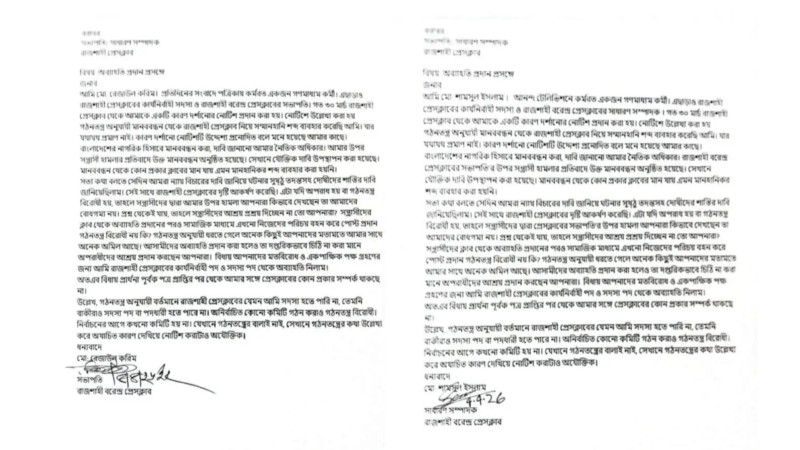 বরাবর
সভাপতি/ সাধারণ সম্পাদক
রাজশাহী প্রেসক্লাব
বিষয়: অব্যাহতি প্রদান প্রসঙ্গে
জনাব
আমি মো: রেজাউল করিম। প্রতিদিনের সংবাদ পত্রিকায় কর্মরত একজন গণমাধ্যম কর্মী। এছাড়াও
রাজশাহী প্রেসক্লাবের কার্যনির্বাহী সদস্য ও রাজশাহী বরেন্দ্র প্রেসক্লাবের সভাপতি। গত ৩০ মার্চ রাজশাহী
প্রেসক্লাব থেকে আমাকে একটি কারণ দর্শানোর নোটিশ প্রদান করা হয়। নোটিশে উল্লেখ্য করা হয়
গঠনতন্ত্র অনুযায়ী মানববন্ধন থেকে রাজশাহী প্রেসক্লাব নিয়ে সম্মানহানি শব্দ ব্যবহার করেছি আমি। যার
যথাযথ প্রমাণ নাই। কারণ দর্শানো নোটিশটি উদ্দেশ্য প্রনোদিত বলে মনে হয়েছে আমার কাছে।
বাংলাদেশের নাগরিক হিসাবে মানববন্ধন করা, দাবি জানানো আমার নৈতিক অধিকার। আমার উপর
সন্ত্রাসী হামলার প্রতিবাদে উক্ত মানববন্ধন অনুষ্ঠিত হয়েছে। সেখানে যৌক্তিক দাবি উপস্থাপন করা হয়েছে।
মানববন্ধন থেকে কোন প্রকার ক্লাবের মান যায় এমন মানহানিকর শব্দ ব্যবহার করা হয়নি।
সত্য কথা বলতে সেদিন আমরা ন্যায় বিচারের দাবি জানিয়ে ঘটনার সুষ্ঠু তদন্তসহ দোষীদের শাস্তির দাবি
জানিয়েছিলাম। সেই সাথে রাজশাহী প্রেসক্লাবের দৃষ্টি আকর্ষণ করেছি। এটা যদি অপরাধ হয় বা গঠনতন্ত্র
বিরোধী হয়, তাহলে সন্ত্রাসীদের দ্বারা আমার উপর হামলা আপনারা কিভাবে দেখছেন তা আমাদের
বোধগম্য নয়। প্রশ্ন থেকেই যায়, তাহলে সন্ত্রাসীদের আশ্রয় প্রশ্রয় দিচ্ছেন না তো আপনারা? সন্ত্রাসীদের
ক্লাব থেকে অব্যাহতি প্রদানের পরও সামাজিক মাধ্যমে এখনো নিজেদের পরিচয় বহন করে পোস্ট প্রদান
গঠনতন্ত্র বিরোধী নয় কি? গঠনতন্ত্র অনুযায়ী ধরতে গেলে অনেক কিছুই আপনাদের মতামতে আমার সাথে
অনেক অমিল আছে। আসামীদের অব্যাহতি প্রদান করা হলেও তা দপ্তরিকভাবে চিঠি না করা মানে
অপরাধীদের আশ্রয় প্রদান করছেন আপনারা। বিধায় আপনাদের মতবিরোধ ও একপাক্ষিক পক্ষ গ্রহণের
জন্য আমি রাজশাহী প্রেসক্লাবের কার্যনির্বাহী পদ ও সদস্য পদ থেকে অব্যাহতি নিলাম।
অত:এব বিষয় প্রার্থনা পূর্বক পত্র প্রাপ্তির পর থেকে আমার সঙ্গে প্রেসক্লাবের কোন প্রকার সম্পর্ক থাকছে
না।
উল্লেখ্য, গঠনতন্ত্র অনুযায়ী বর্তমানে রাজশাহী প্রেসক্লাবের যেমন আমি সদস্য হতে পারি না, তেমনি
বাকীরাও সদস্য পদ বা পদধারী হতে পারে না। অনির্বাচিত কোনো কমিটি গঠন করাও গঠনতন্ত্র বিরোধী।
নির্বাচনের আগে কখনো কমিটি হয় না। যেখানে গঠনতন্ত্রের বালাই নাই, সেখানে গঠনতন্ত্রের কথা উল্লেখ্য
করে অযাচিত কারণ দেখিয়ে নোটিশ করাটাও অযৌক্তিক।
ধন্যবাদান্তে
মো: রেজাউল করিম
সভাপতি
রাজশাহী বরেন্দ্র প্রেসক্লাব
বরাবর
সভাপতি/ সাধারণ সম্পাদক
রাজশাহী প্রেসক্লাব
বিষয়: অব্যাহতি প্রদান প্রসঙ্গে
জনাব
আমি মো: শামসুল ইসলাম। আনন্দ টেলিভিশনে কর্মরত একজন গণমাধ্যম কর্মী। এছাড়াও রাজশাহী
প্রেসক্লাবের কার্যনির্বাহী সদস্য ও রাজশাহী বরেন্দ্র প্রেসক্লাবের সাধারণ সম্পাদক। গত ৩০ মার্চ রাজশাহী
প্রেসক্লাব থেকে আমাকে একটি কারণ দর্শানোর নোটিশ প্রদান করা হয়। নোটিশে উল্লেখ্য করা হয়
গঠনতন্ত্র অনুযায়ী মানববন্ধন থেকে রাজশাহী প্রেসক্লাব নিয়ে সম্মানহানি শব্দ ব্যবহার করেছি আমি। যার
যথাযথ প্রমাণ নাই। কারণ দর্শানো নোটিশটি উদ্দেশ্য প্রনোদিত বলে মনে হয়েছে আমার কাছে।
বাংলাদেশের নাগরিক হিসাবে মানববন্ধন করা, দাবি জানানো আমার নৈতিক অধিকার। রাজশাহী বরেন্দ্র
প্রেসক্লাবের সভাপতি'র উপর সন্ত্রাসী হামলার প্রতিবাদে উক্ত মানববন্ধন অনুষ্ঠিত হয়েছে। সেখানে
যৌক্তিক দাবি উপস্থাপন করা হয়েছে। মানববন্ধন থেকে কোন প্রকার ক্লাবের মান যায় এমন মানহানিকর
শব্দ ব্যবহার করা হয়নি।
সত্য কথা বলতে সেদিন আমরা ন্যায় বিচারের দাবি জানিয়ে ঘটনার সুষ্ঠু তদন্তসহ দোষীদের শাস্তির দাবি
জানিয়েছিলাম। সেই সাথে রাজশাহী প্রেসক্লাবের দৃষ্টি আকর্ষণ করেছি। এটা যদি অপরাধ হয় বা গঠনতন্ত্র
বিরোধী হয়, তাহলে সন্ত্রাসীদের দ্বারা প্রেসক্লাবের সভাপতি'র উপর হামলা আপনারা কিভাবে দেখছেন তা
আমাদের বোধগম্য নয়। প্রশ্ন থেকেই যায়, তাহলে সন্ত্রাসীদের আশ্রয় প্রশ্রয় দিচ্ছেন না তো আপনারা?
সন্ত্রাসীদের ক্লাব থেকে অব্যাহতি প্রদানের পরও সামাজিক মাধ্যমে এখনো নিজেদের পরিচয় বহন করে
পোস্ট প্রদান গঠনতন্ত্র বিরোধী নয় কি? গঠনতন্ত্র অনুযায়ী ধরতে গেলে অনেক কিছুই আপনাদের মতামতে
আমার সাথে অনেক অমিল আছে। আসামীদের অব্যাহতি প্রদান করা হলেও তা দপ্তরিকভাবে চিঠি না করা
মানে অপরাধীদের আশ্রয় প্রদান করছেন আপনারা। বিধায় আপনাদের মতবিরোধ ও একপাক্ষিক পক্ষ
গ্রহণের জন্য আমি রাজশাহী প্রেসক্লাবের কার্যনির্বাহী পদ ও সদস্য পদ থেকে অব্যাহতি নিলাম।
অত:এব বিষয় প্রার্থনা পূর্বক পত্র প্রাপ্তির পর থেকে আমার সঙ্গে প্রেসক্লাবের কোন প্রকার সম্পর্ক থাকছে
না।
উল্লেখ্য, গঠনতন্ত্র অনুযায়ী বর্তমানে রাজশাহী প্রেসক্লাবের যেমন আমি সদস্য হতে পারি না, তেমনি
বাকীরাও সদস্য পদ বা পদধারী হতে পারে না। অনির্বাচিত কোনো কমিটি গঠন করাও গঠনতন্ত্র বিরোধী।
নির্বাচনের আগে কখনো কমিটি হয় না। যেখানে গঠনতন্ত্রের বালাই নাই, সেখানে গঠনতন্ত্রের কথা উল্লেখ্য
করে অযাচিত কারণ দেখিয়ে নোটিশ করাটাও অযৌক্তিক।
ধন্যবাদান্তে
মো: শামসুল ইসলাম
4.4.26
সাধারণ সম্পাদক
রাজশাহী বরেন্দ্র প্রেসক্লাব